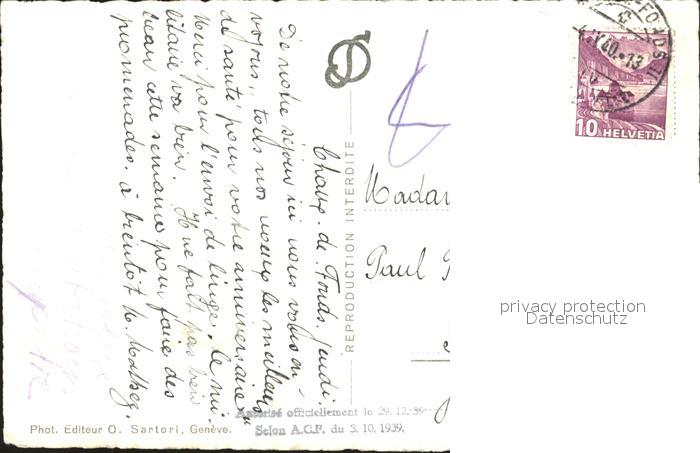 Chaux-de-Fonds. jeudi.
De notre séjour ici nous vous en-
voyons, tous nos voeux les meilleurs
de santé pour votre anniversaire.
Merci pour l'envoi de linge. Le mi-
litaire va bien. Il ne fait pas bien
beau cette semaine pour faire des
promenades. à bientôt
REPRODUCTION INTERDITE
Madam
Paul
-FONDS
40.-13
10 HELVETIA
privacy protection
Datenschutz
Autorisé officiellement le 29.12.39
Selon A.C.F. du 3.10.1939.
Phot. Editeur O. Sartori, Genève.